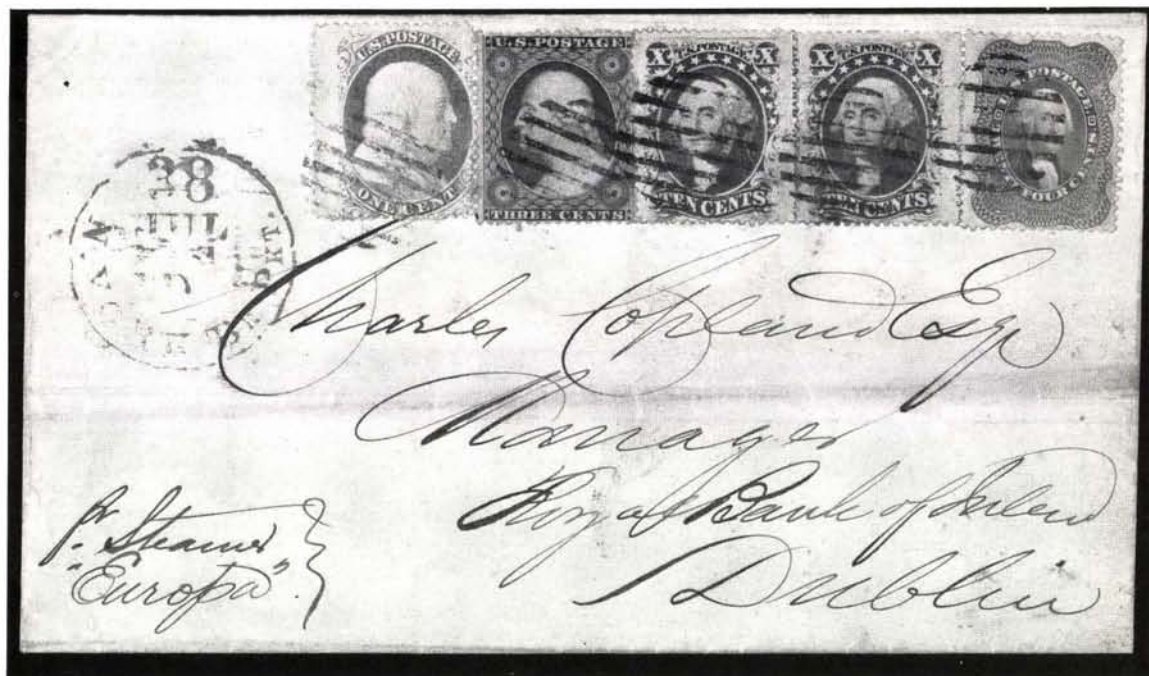 U.S.POSTAGE
ONE CENT
U.S.POSTAGE
THREE CENTS
X U.S.POSTAGE X
TEN CENTS
X U.S.POSTAGE X
CENTS
U.S. POSTAGE
38
JUL
PKT.
Charles Copland Esqr
Manager
Royal Bank of Ireland
Dublin
pr. Steamer
"Europa"